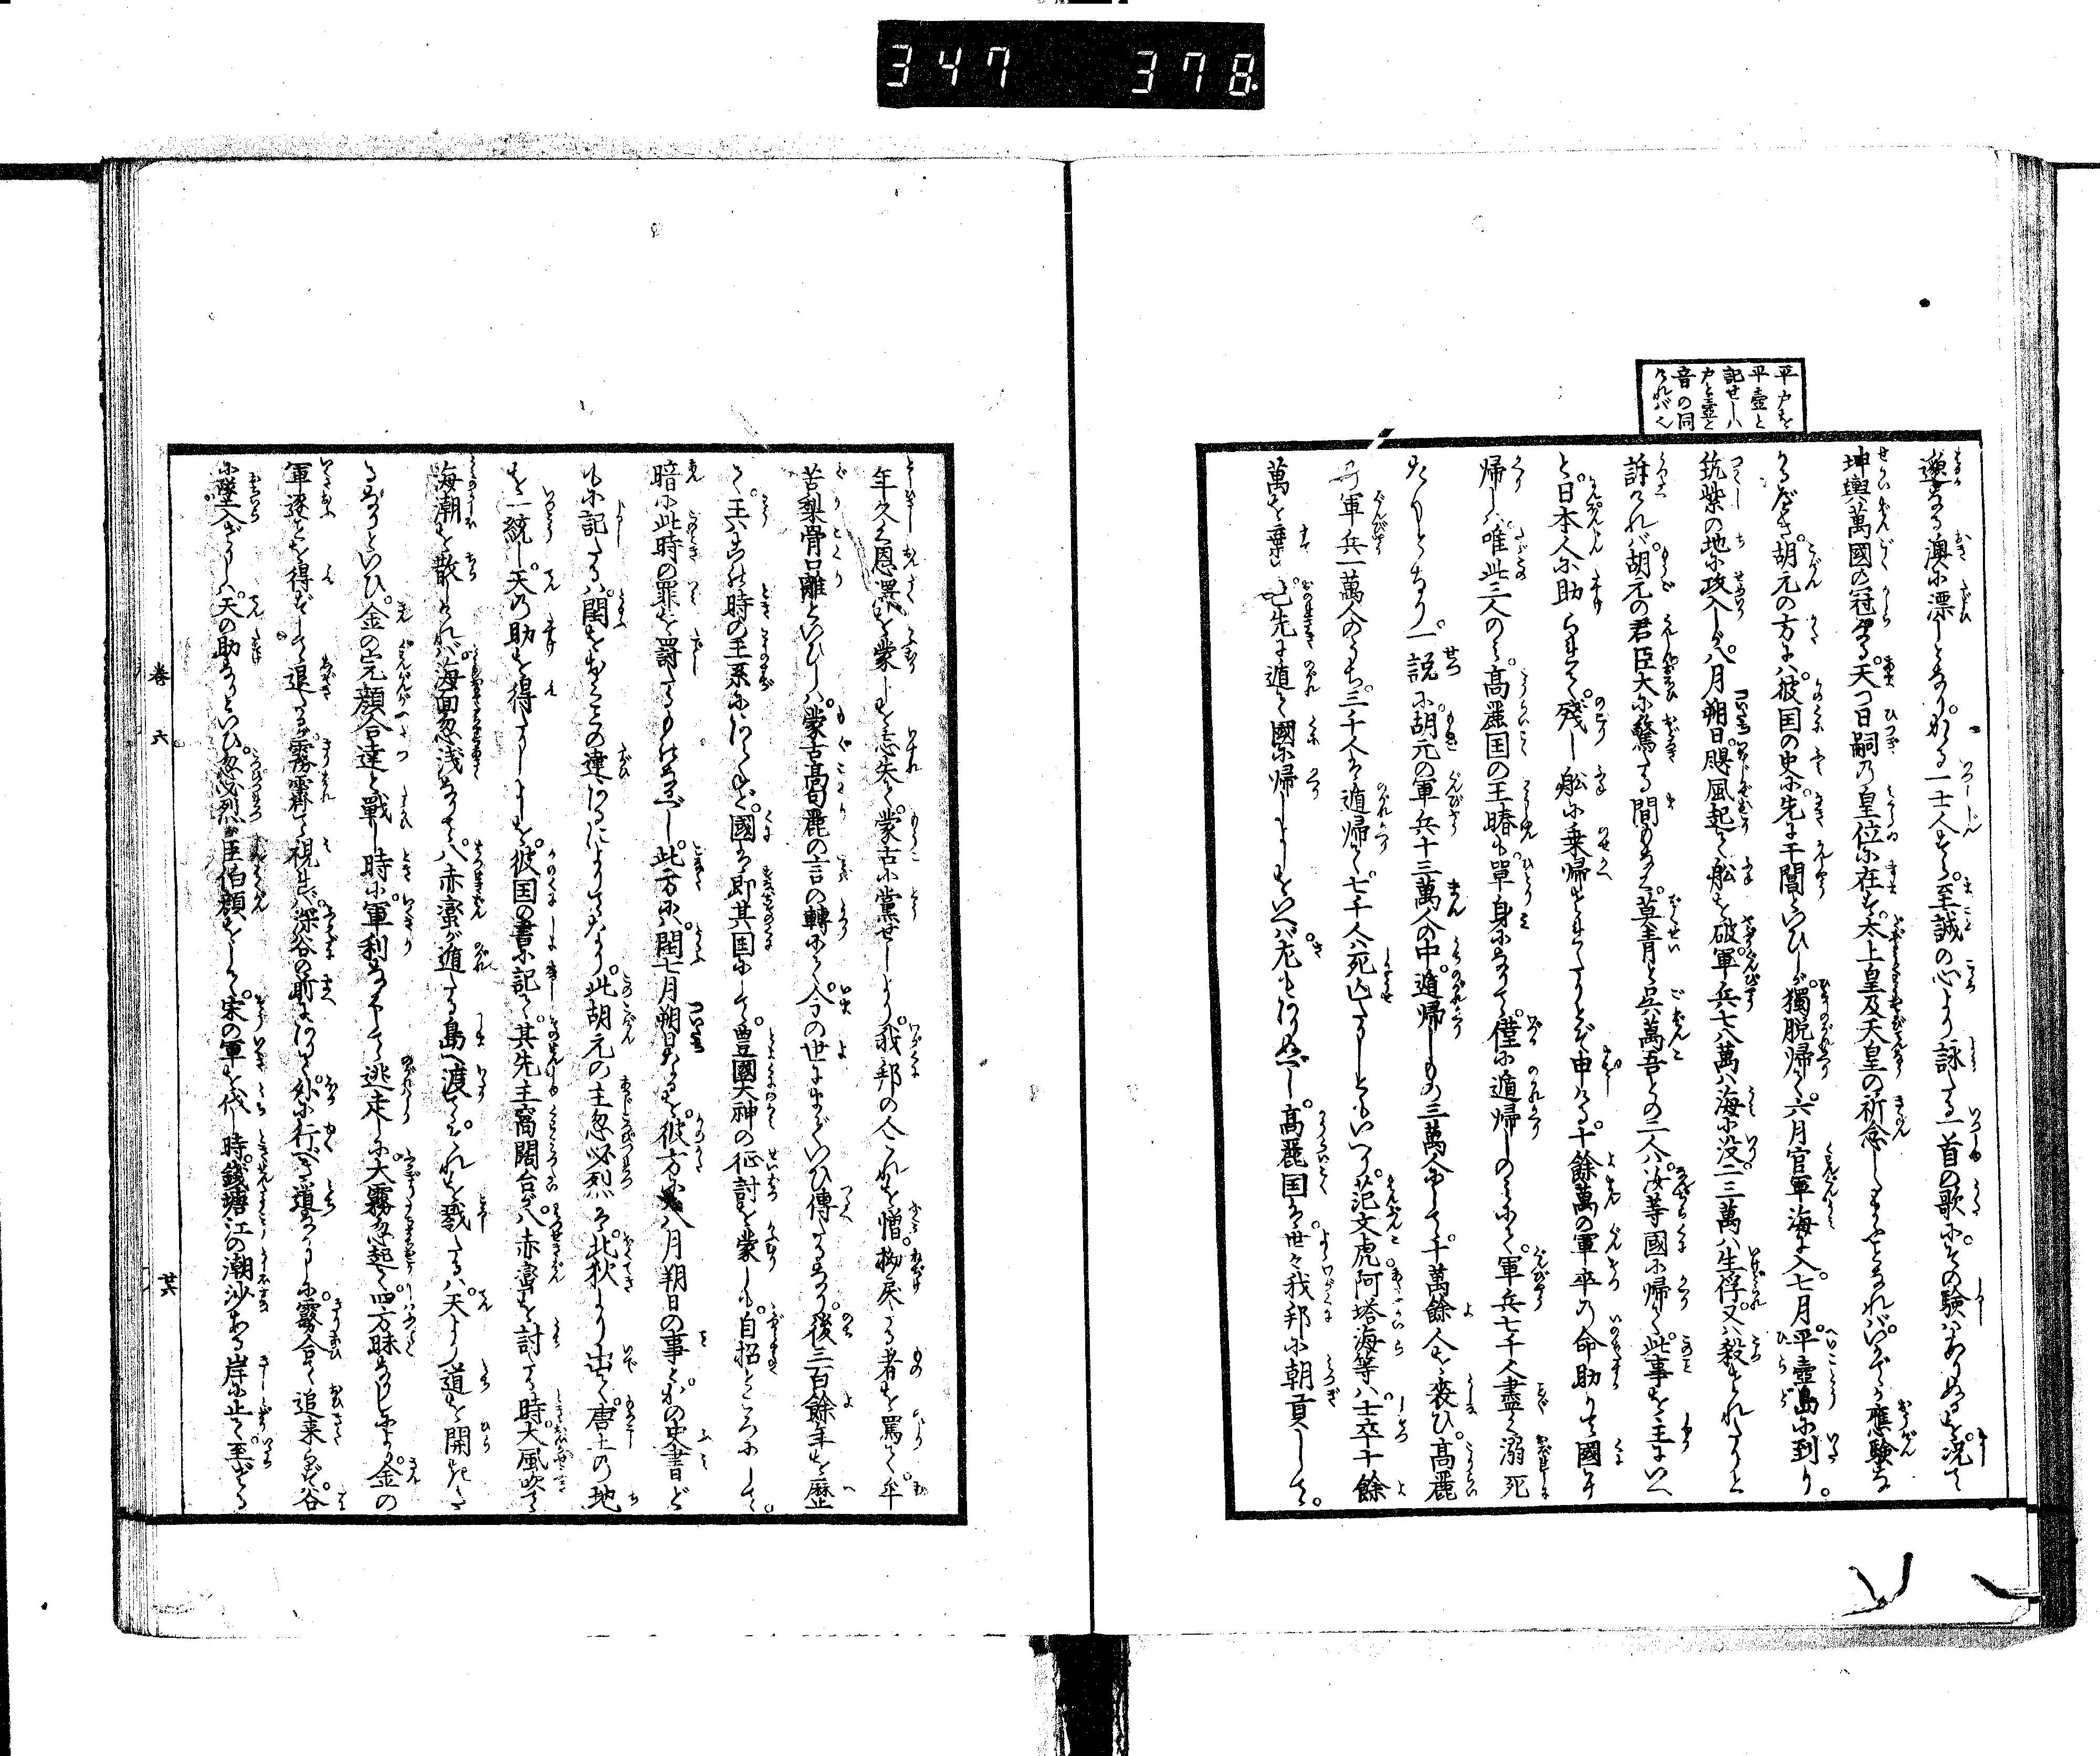 347 378
平戸を
平壺と
記せしハ
戸と壺と
音の同
けれバ也
邈なる澳に漂しとなり。かゝる一士人すら。至誠の心より詠たる一首の歌に。その験ハありぬるを。況て
坤輿萬國の冠たる。天つ日嗣の皇位に在す。太上皇及天皇の祈念したまふことなれバ。いかでか應験な
かるべき。胡元の方にハ。彼国の史に。先に于閶といひしが。獨脱帰て。六月官軍海に入。七月平壺島に到り。
筑紫の地に攻入しが。八月朔日。颶風起て舩を破。軍兵七八萬ハ海に没。二三萬ハ生俘。又ハ殺されたりと
訴けれバ。胡元の君臣大に驚たる間もなく。莫青と呉萬吾との二人ハ。汝等國に帰て。此事を主にいへ
と。日本人に助られて。残し舩に乗帰されたりとぞ申ける。十餘萬の軍卒の命助りて國に
帰しハ。唯此三人のミ。高麗国の王賰も。單身になりて。僅に遁帰しのミにて。軍兵七千人盡く溺死
たりとなり。一説に。胡元の軍兵十三萬人の中。遁帰しもの三萬人にして。十萬餘人を喪ひ。高麗
の軍兵一萬人のうち。三千人ハ遁帰て。七千人ハ死亡たりしともいへり。范文虎阿塔海等ハ。士卒十餘
萬を棄。己先に遁て國に帰しよしをいへバ。左もありぬべし。高麗国ハ。世々我邦に朝貢して。
年久く恩澤を蒙しを忘失て。蒙古に黨せしより。我邦の人これを憎。拗戻たる者を罵て。牟
苦梨骨口離といひしハ。蒙古高句麗の言の轉にて。今の世にまでいひ傳たるなり。後三百餘年を歴
て。王ハこの時の王系にあらねど。國ハ即其国にして。豊國大神の征討を蒙しも。自招ところにして。
暗に此時の罪を罰たるものなるべし。此方にハ。閏七月朔日なるを。彼方にハ八月朔日の事とし。かの史書ど
もに記したるハ。閏をおくことの違あるによりてなり。此胡元の主忽必烈ハ。北狄より出て。唐土の地
を一統し。天の助を得たりしよしを。彼国の書に記て。其先主窩闊台が。八赤蛮を討たる時。大風吹て
海潮を散しけれバ。海面忽浅なりて。八赤蛮が遁たる島へ渡て。これを戮たるハ。天より道を開きた
るなりといひ。金の完顔合達と戰し時に。軍利なくして逃走しに。大霧忽起て。四方昧なりしにより。金の
軍逐ことを得ずして退たるが。霧霽て視れバ。深谷の前にありて。外に行べき道なかりしに。霧合て追来らず。谷
に墜入ざりしハ。天の助なりといひ。忽必烈が臣伯顔をして。宋の軍を伐し時。銭塘江の潮沙ある岸に止て。至ざる
巻六
廿六